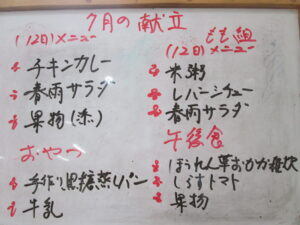 7月の献立
(12日)メニュー
チキンカレー
春雨サラダ
果物
おやつ
手作り黒糖蒸しパン
牛乳
もも組
(12日)メニュー
米粥
レバーシチュー
春雨サラダ
午後食
ほうれん草おかか
しらすトマト
果物